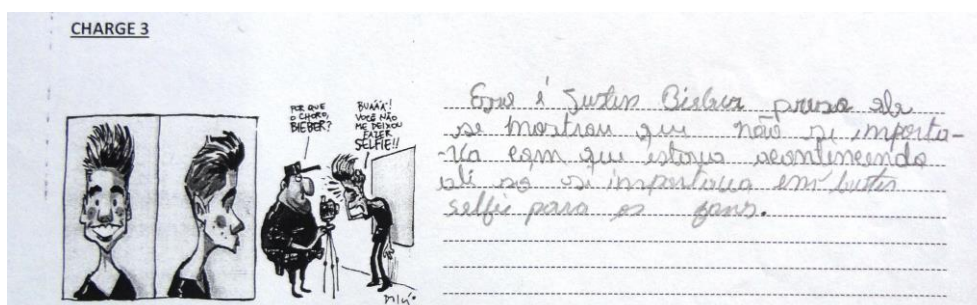 CHARGE 3
POR QUE
O CHORO,
BIEBER?
BUÁÁÁ!
VOCÊ NÃO
ME DEIXOU
FAZER
SELFIE!!
Esse é Justin Bieber preso ele
se mostrou que não se importa-
va com que estava acontecendo
ali só se importava em
selfie para os fans.